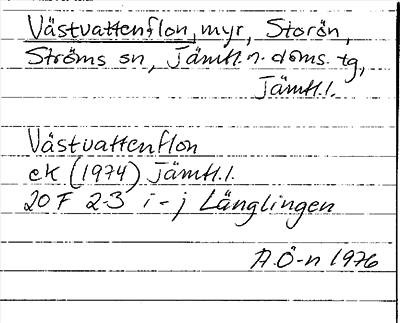 Västvattenflon, myr, Storön,
Ströms sn, Jämtl. n. doms. tg,
Jämtl. l.
Västvattenflon
ek (1974) Jämtl. l.
20 F 2-3 i-j Länglingen
A.Ö-n 1976